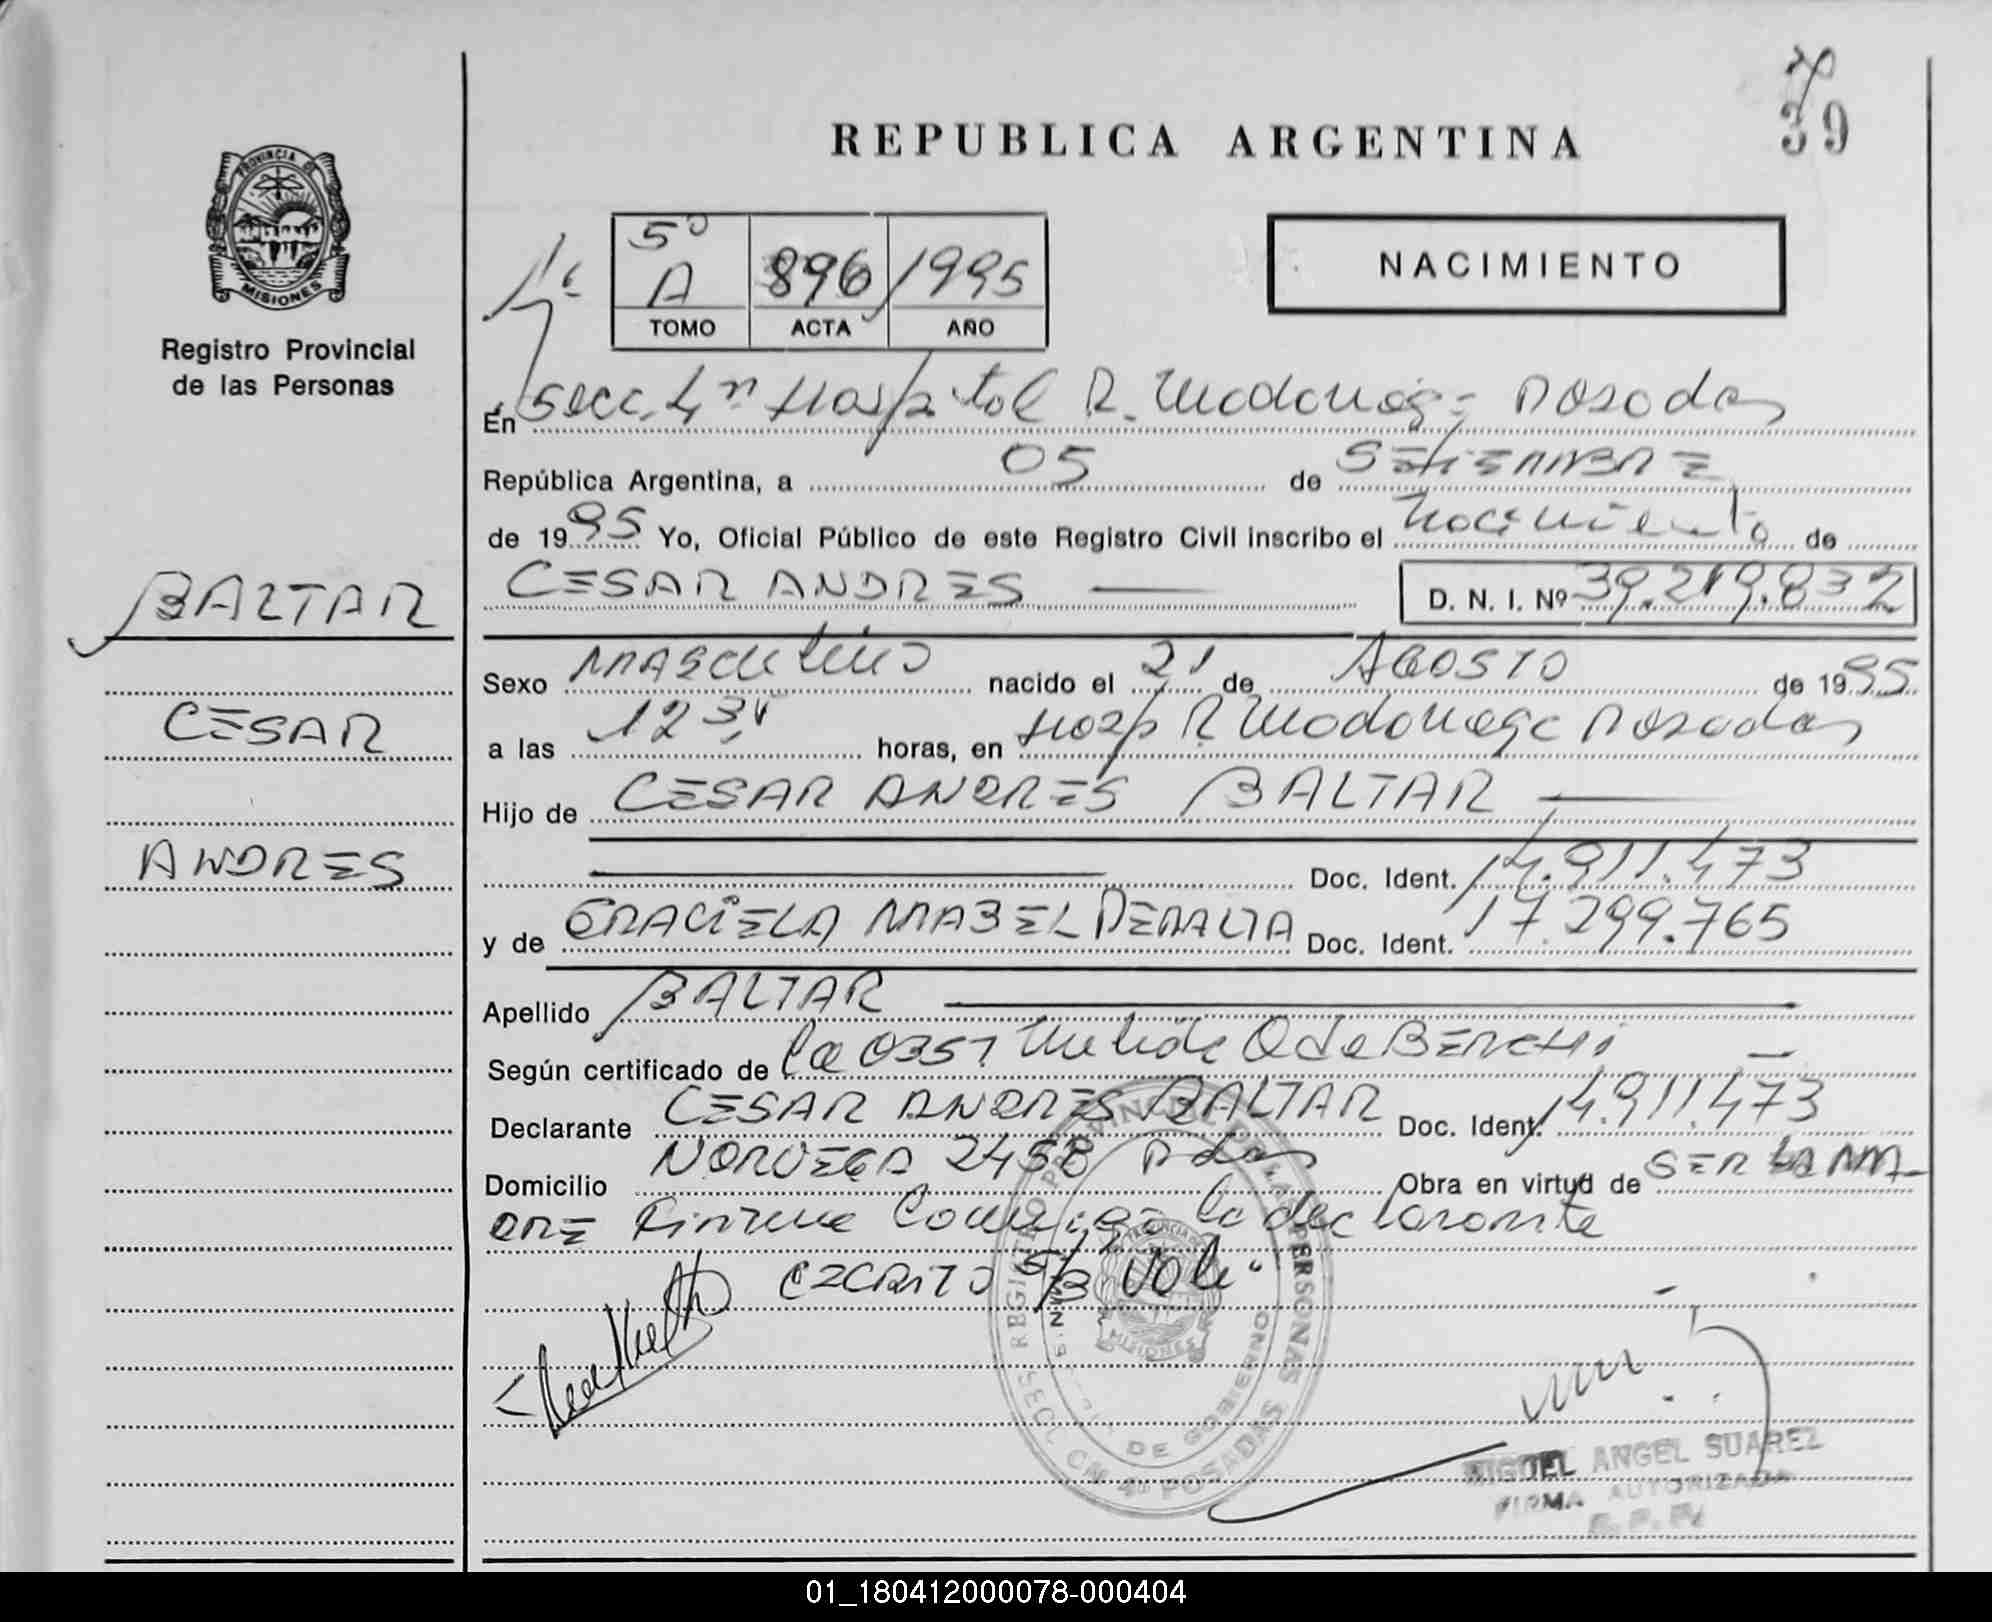 39
REPUBLICA ARGENTINA
PROVINCIA DE
MISIONES
Registro Provincial
de las Personas
5º
A 896 1995
TOMO ACTA AÑO
NACIMIENTO
En Secc. 4ª Hospital R. Madariaga - Posadas
República Argentina, a 05 de SETIEMBRE
de 1995 Yo, Oficial Público de este Registro Civil inscribo el Nacimiento de
CESAR ANDRES D. N. I. Nº 39.219.832
BALTAR
CESAR
ANDRES
Sexo MASCulino nacido el 21 de AGOSTO de 1995
a las 12 horas, en Hosp R Madariaga Posadas
Hijo de CESAR ANDRES BALTAR
Doc. Ident. 14.911.473
y de GRACIELA MABEL PERALTA Doc. Ident. 17.299.765
Apellido BALTAR
Según certificado de la 0351
Declarante CESAR ANDRES BALTAR Doc. Ident. 14.911.473
Domicilio NORUEGA 2458 Pdas Obra en virtud de SER
Conmigo declarante
REGISTRO PROVINCIAL DE LAS PERSONAS
SECC. 4ª POSADAS
DE GOBIERNO
MISIONES
MIGUEL ANGEL SUAREZ
FIRMA AUTORIZADA
R. P. P.
01_180412000078-000404